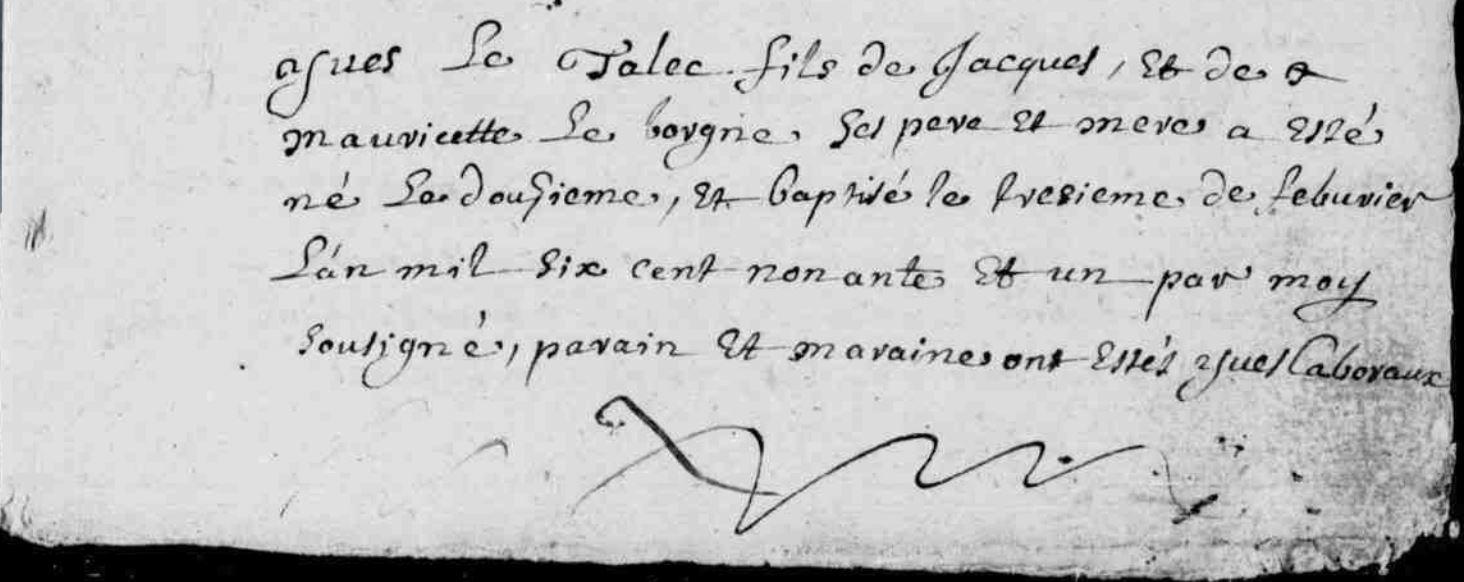 yues Le Talec fils de Jacques, et de
mauricette Le borgne ses pere et mere a esté
né Le dousieme, et baptisé le tresieme de feburier
L'án mil six cent nonante et un par moy
sousigné, parain et maraine ont estés yues Caboraux